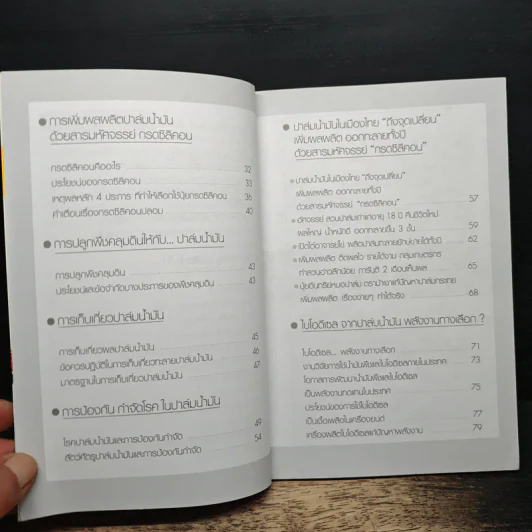 การเพิ่มผลผลิตปาล์มน้ำมัน
ด้วยสารมหัศจรรย์ กรดซิลิคอน
กรดซิลิคอนคืออะไร 32
ประโยชน์ของกรดซิลิคอน 33
เหตุผลหลัก 4 ประการ ที่ทำให้เลือกใช้ปุ๋ยกรดซิลิคอน 36
คำเตือนเรื่องกรดซิลิคอนปลอม 40
การปลูกพืชคลุมดินให้กับ... ปาล์มน้ำมัน
การปลูกพืชคลุมดิน 43
ประโยชน์และข้อจำกัดบางประการของพืชคลุมดิน 43
การเก็บเกี่ยวปาล์มน้ำมัน
การเก็บเกี่ยวผลปาล์มน้ำมัน 45
ข้อควรปฏิบัติในการเก็บเกี่ยวทะลายปาล์มน้ำมัน 46
มาตรฐานในการเก็บเกี่ยวปาล์มน้ำมัน 47
การป้องกัน กำจัดโรค ในปาล์มน้ำมัน
โรคปาล์มน้ำมันและการป้องกันกำจัด 49
สัตว์ศัตรูปาล์มน้ำมันและการป้องกันกำจัด 54
ปาล์มน้ำมันในเมืองไทย "ถึงจุดเปลี่ยน"
เพิ่มผลผลิต ออกทะลายทั้งปี
ด้วยสารมหัศจรรย์ "กรดซิลิคอน"
ปาล์มน้ำมันในเมืองไทย "ถึงจุดเปลี่ยน"
เพิ่มผลผลิต ออกทะลายทั้งปี
ด้วยสารมหัศจรรย์ "กรดซิลิคอน" 57
อัศจรรย์ สวนปาล์มเก่าแก่อายุ 18 ปี คืนชีวิตใหม่
ผลใหญ่ น้ำหนักดี ออกทะลายขึ้น 3 ชั้น 59
เปิดไร่อาจารย์ไข่ ผลิตปาล์มทะลายยักษ์ขายได้ทั้งปี 62
เพิ่มผลผลิต ติดผลไว รายได้งาม กลุ่มเกษตรกร
ทำสวนอ่างลึกน้อย การันตี 2 เดือนเห็นผล 65
ปุ๋ยอินทรีย์หมอปาล์ม ตรานำงาแก้ปัญหาปาล์มกระเทย
เพิ่มผลผลิต เรื่องง่ายๆ ทำได้จริง 68
ไบโอดีเซล จากปาล์มน้ำมัน พลังงานทางเลือก ?
ไบโอดีเซล... พลังงานทางเลือก 71
งานวิจัยการใช้น้ำมันพืชและไบโอดีเซลภายในประเทศ 73
โอกาสการพัฒนาน้ำมันพืชและไบโอดีเซล
เป็นพลังงานทดแทนในประเทศ 75
ประโยชน์ของการใช้ไบโอดีเซล
เป็นเชื้อเพลิงในเครื่องยนต์ 77
เครื่องผลิตไบโอดีเซลแก้ปัญหาพลังงาน 79